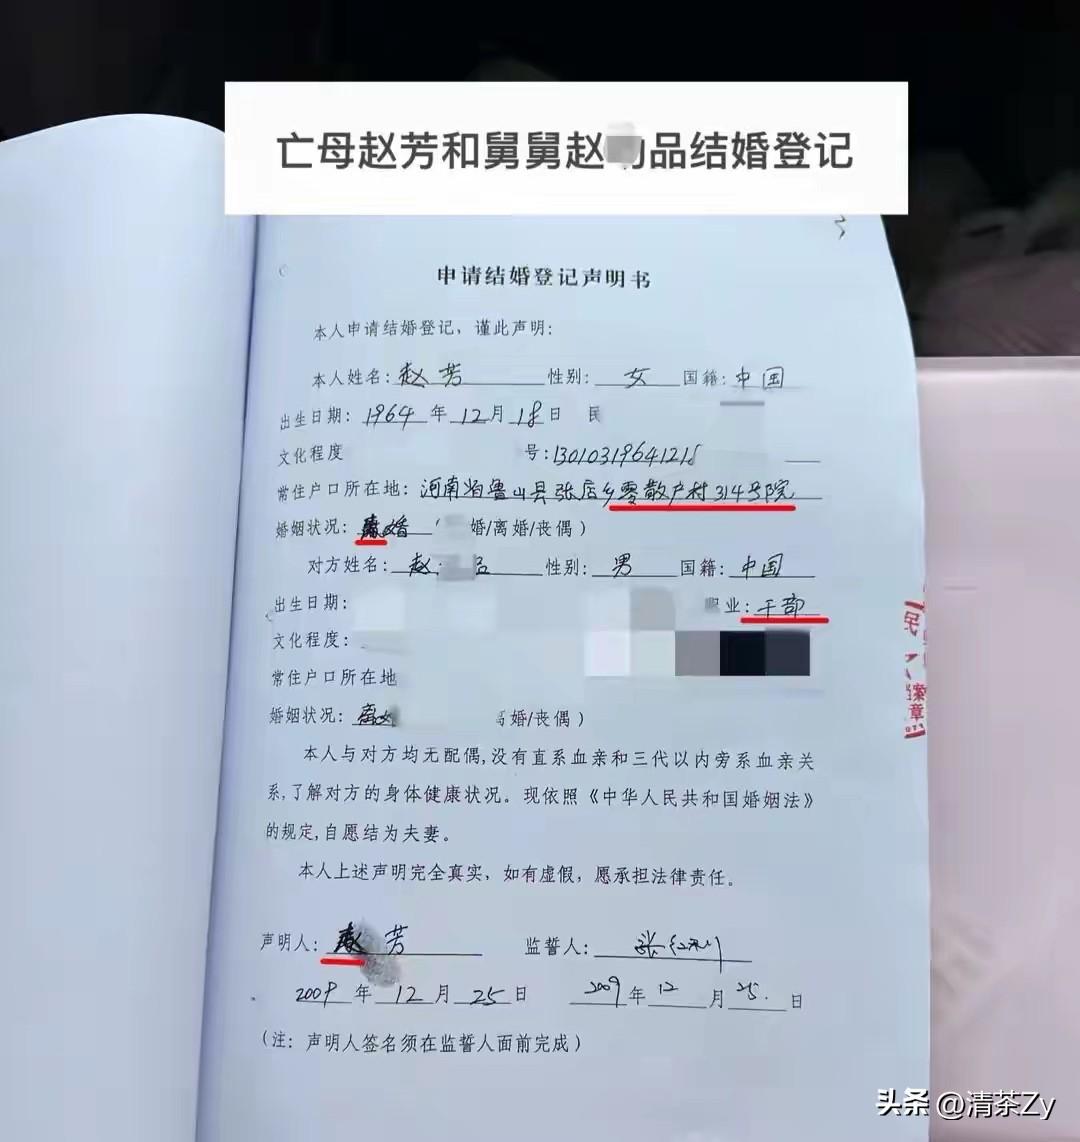 亡母赵芳和舅舅赵 品结婚登记
申请结婚登记声明书
本人申请结婚登记，谨此声明：
本人姓名：赵芳 性别：女 国籍：中国
出生日期：1964年12月18日 民
文化程度 号：13010319641218
常住户口所在地：河南省鲁山县张店乡零散户村314号院
婚姻状况：离婚 婚/离婚/丧偶）
对方姓名：赵 品 性别：男 国籍：中国
出生日期： 业：干部
文化程度：
常住户口所在地
婚姻状况：离婚 离婚/丧偶）
本人与对方均无配偶,没有直系血亲和三代以内旁系血亲关
系,了解对方的身体健康状况。现依照《中华人民共和国婚姻法》
的规定,自愿结为夫妻。
本人上述声明完全真实，如有虚假，愿承担法律责任。
声明人：赵芳 监誓人：张
2009年12月25日 2009年12月25日
（注：声明人签名须在监誓人面前完成）
民
案
章
头条 @清茶Zy